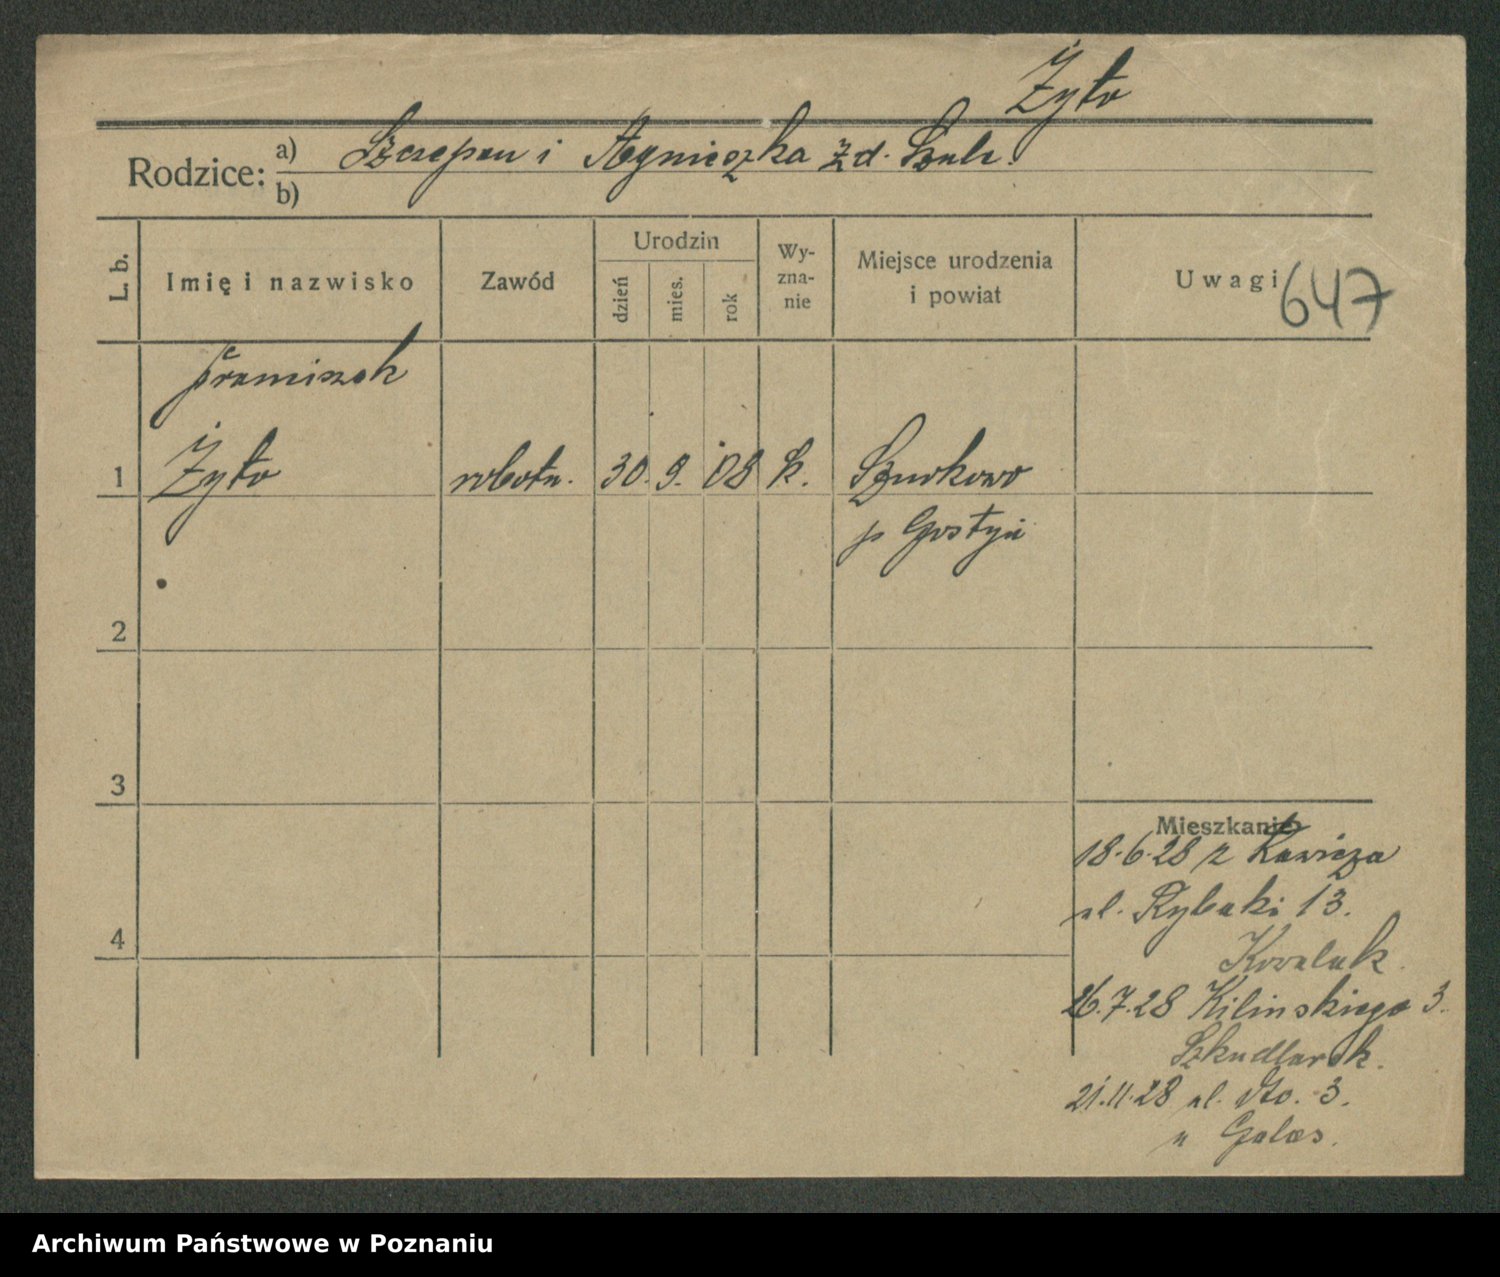 Żyto
Rodzice: a) Szczepan i Agnieszka zd. Szulc.
b)
L. b.
Imię i nazwisko
Zawód
Urodzin
dzień
mies.
rok
Wy-
zna-
nie
Miejsce urodzenia
i powiat
Uwagi
647
Franciszek
1 Żyto robotn. 30. 9. 08 k. Szurkowo
p Gostyń
2
3
4
Mieszkanie
18.6.28 z Rawicza
ul. Rybaki 13.
Kowalak.
26.7.28 Kilinskiego 3.
Szkudlarek.
21.11.28 ul. dto. 3.
u Galas.
Archiwum Państwowe w Poznaniu